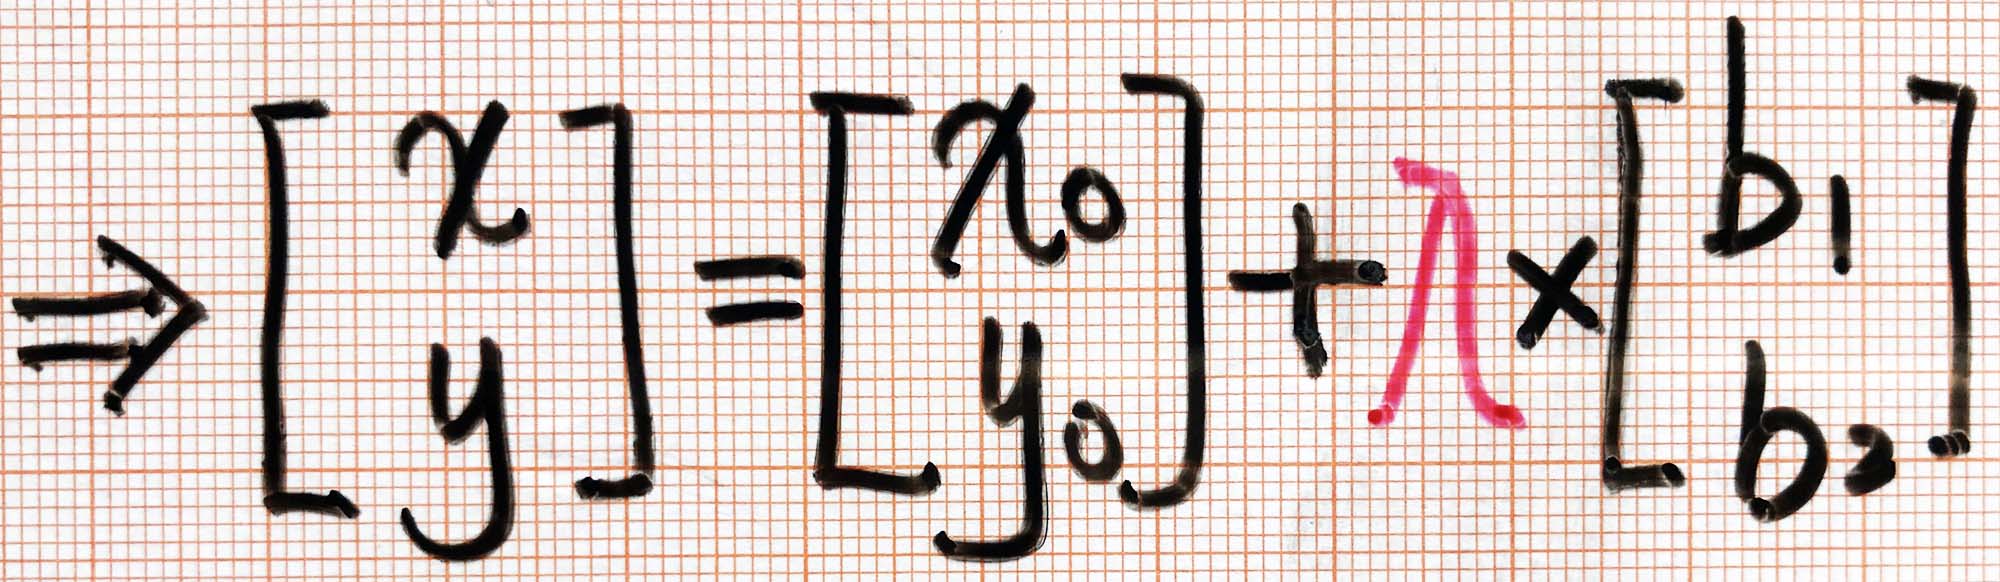 ⇒ [x y] = [x₀ y₀] + λ × [b₁ b₂]